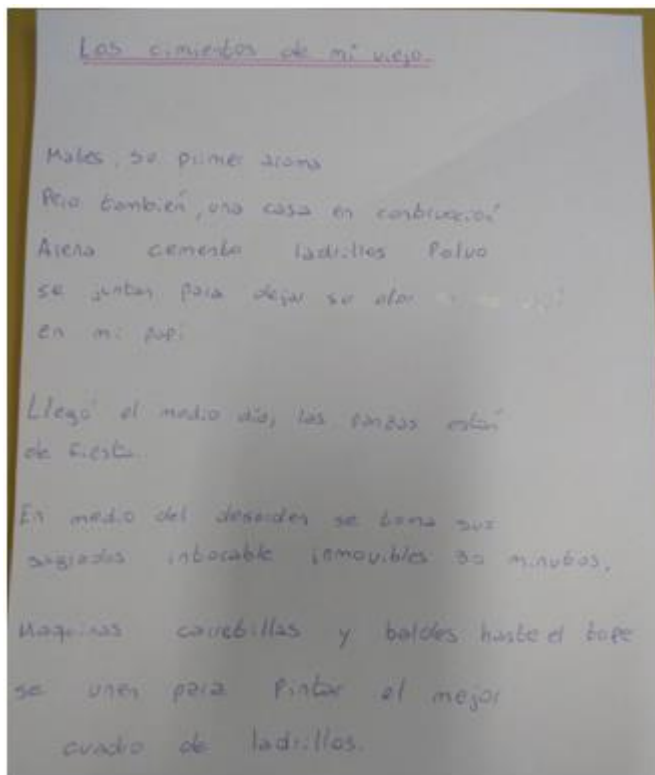 Los cimientos de mi viejo.
Mates, su primer aroma
Pero también, una casa en construcción
Arena cemento ladrillos Polvo
se juntan para dejar su olor
en mi papi
Llegó el medio día, las panzas están
de Fiesta.
En medio del desorden se toma sus
sagrados intocable inmovibles 30 minutos,
Maquinas carretillas y baldes haste el tope
se unen para Pintar el mejor
cuadro de ladrillos.